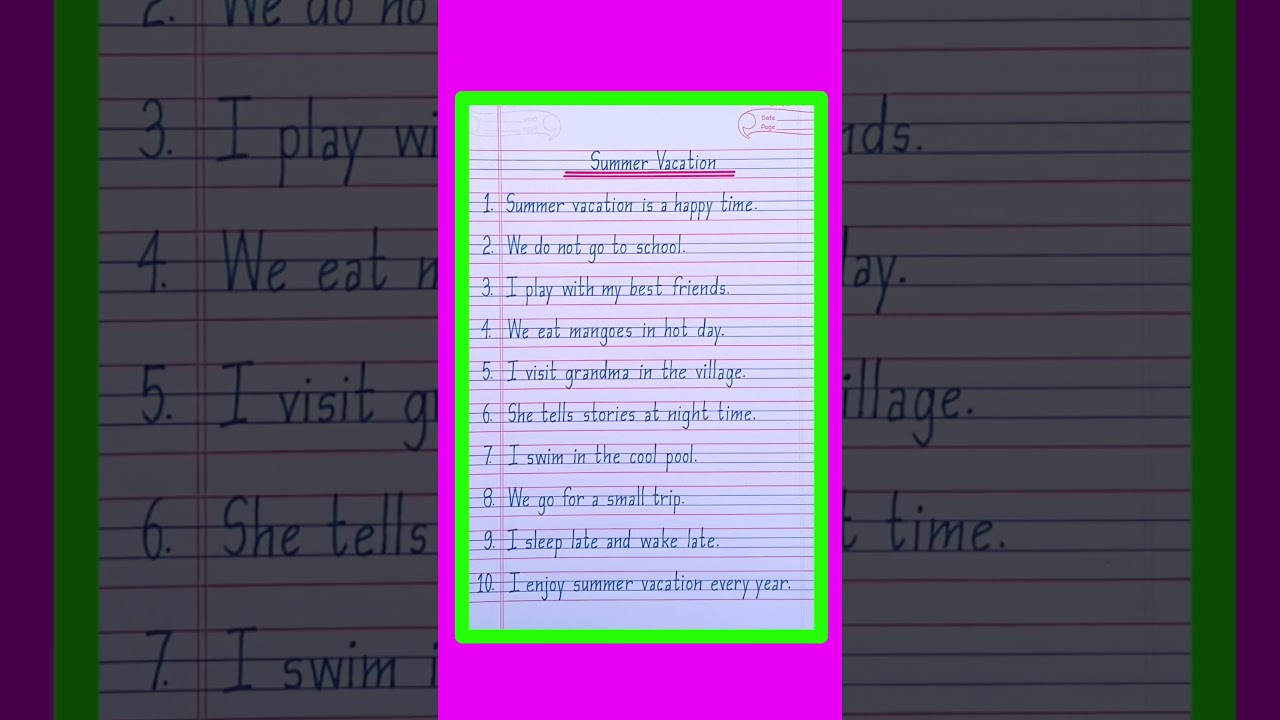 Date
Page
Summer Vacation
1. Summer vacation is a happy time.
2. We do not go to school.
3. I play with my best friends.
4. We eat mangoes in hot day.
5. I visit grandma in the village.
6. She tells stories at night time.
7. I swim in the cool pool.
8. We go for a small trip.
9. I sleep late and wake late.
10. I enjoy summer vacation every year.